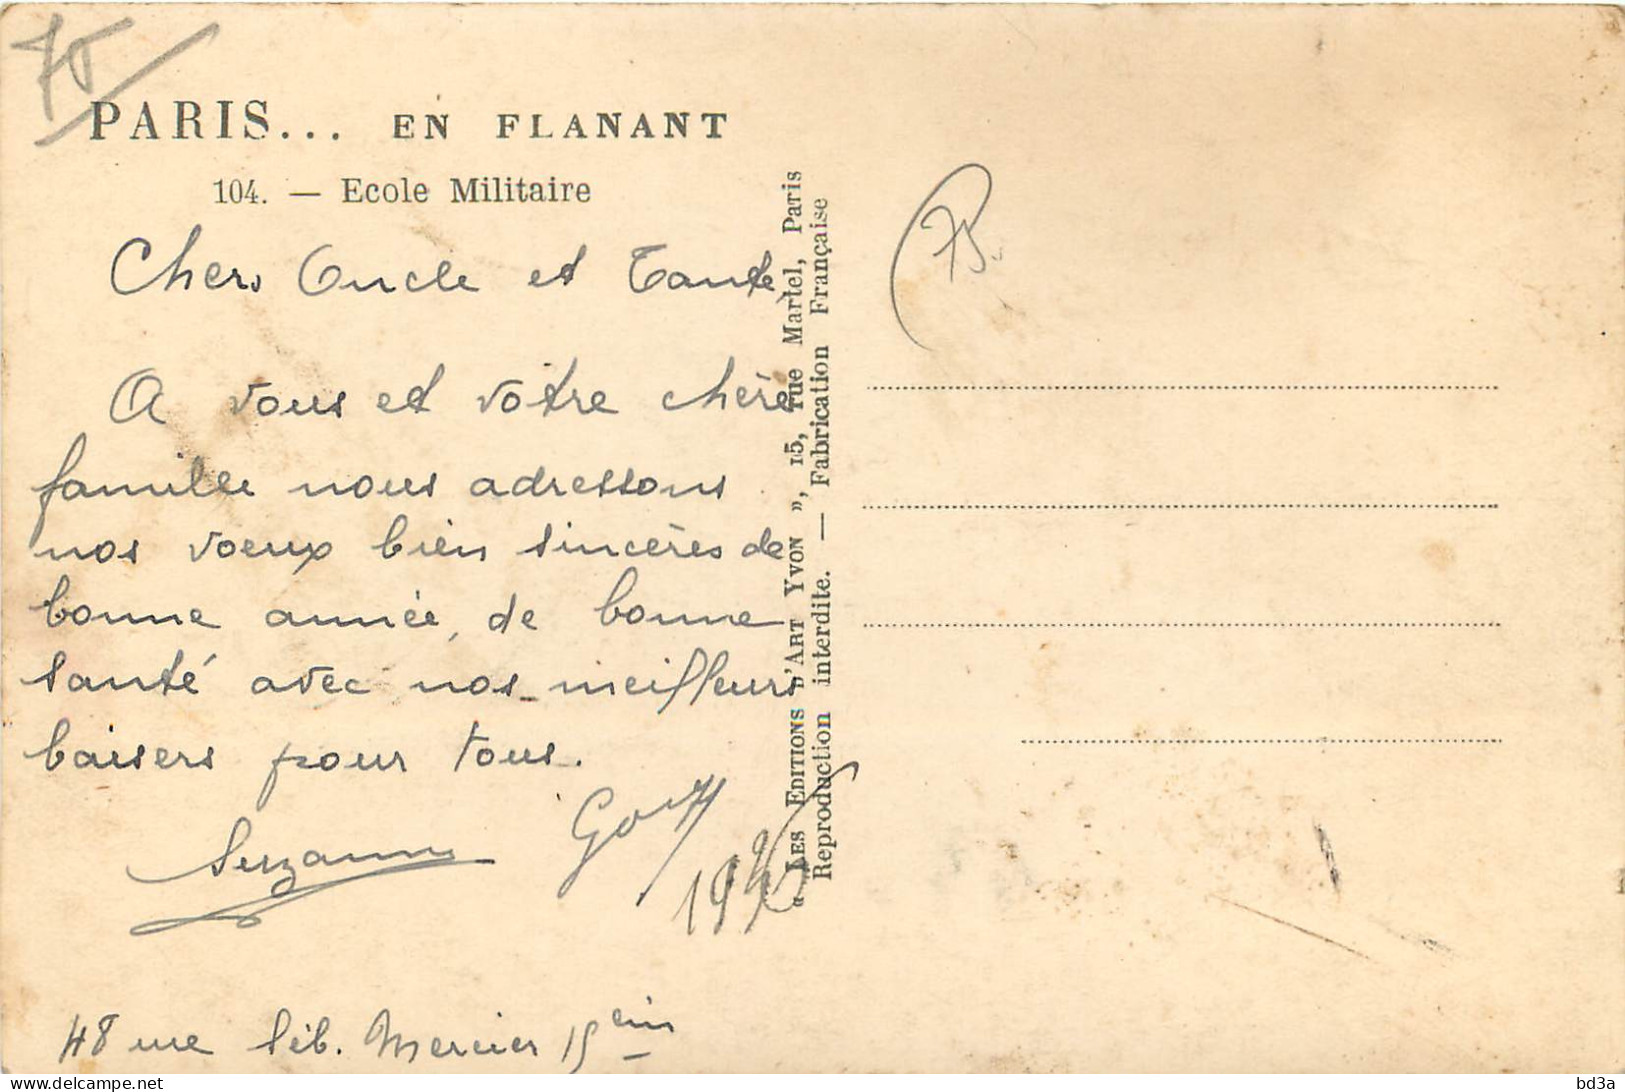 75
PARIS... EN FLANANT
104. — Ecole Militaire
Chers Oncle et Tante,
A vous et votre chère
famille nous adressons
nos voeux bien sincères de
bonne année, de bonne
santé avec nos meilleurs
baisers pour tous.
Suzanne
48 rue Séb. Mercier 15 eim
« LES EDITIONS D'ART YVON », 15, rue Martel, Paris
Reproduction interdite. — Fabrication Française
75.
Delcampe.net
bd3a